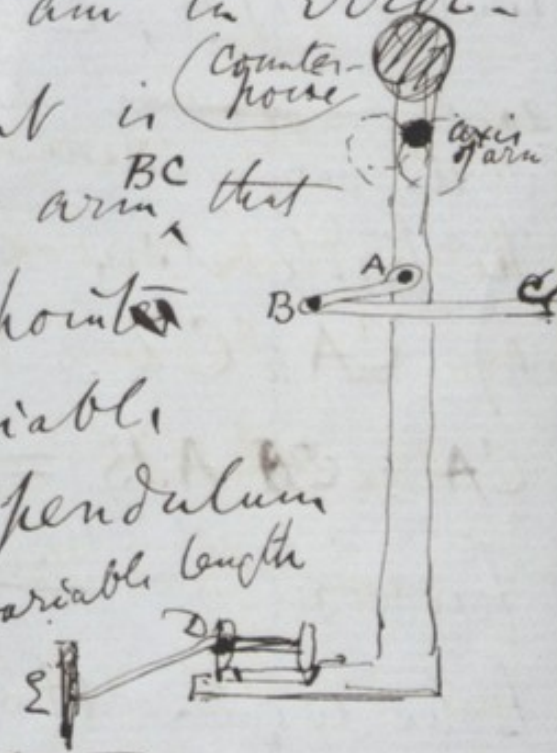 am in
counter-
poise
is
axis
of arm
BC
arm ^ that
A
B
C
point
iable
pendulum
ariable length
D
E